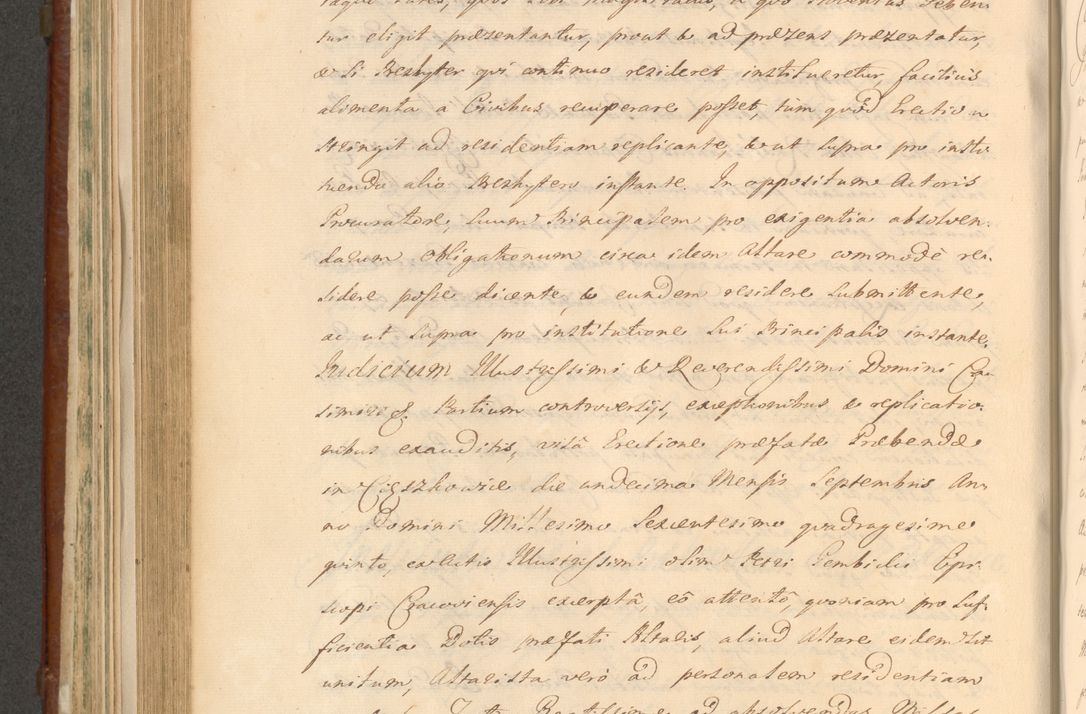 tur eligit præsentantur, prout & ad præzens præzentatur,
& si Presbyter qvi continuo resideret institueretur, facilius
alimenta à Civibus recuperare posset, tùm qvòd Erectio a
stringit ad residentiam replicante, & ut supra pro insti
tuendo alio Presbytero instante. In oppositum Actoris
Procuratore, suum Principalem pro exigentia absolven
darum obligationum circa idem Altare commodè re-
sidere posse dicente, & eundem residere submittente,
ac ut supra pro institutione sui Principalis instante.
Iudicium Illustrissimi & Reverendissimi Domini Ca
simiri & Partium controversijs, exceptionibus & replicatio-
nibus exauditis, visâ Erectione præfatæ Præbendæ
in Cięszkowice die undecima Mensis Septembris An
no Domini Millesimo Sexcentesimo qvadragesimo
qvinto, ex Actis Illustrissimi olim Petri Gembicki Epi
scopi Cracoviensis excerptâ, eô attentô, qvoniam pro suf
ficientia Dotis præfati Altaris, aliud Altare eidem sit
unitum, Altarista verò ad personalem residentiam